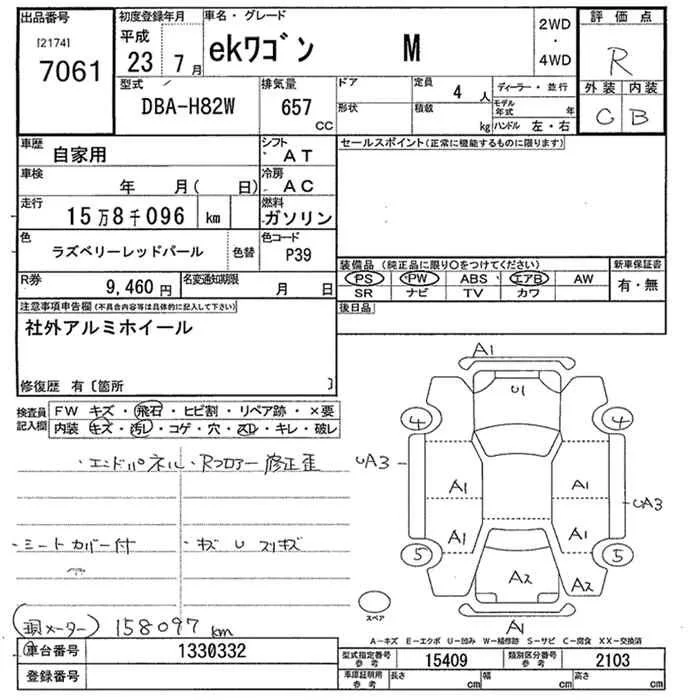 出品番号 初度登録年月 車名・グレード 2WD・4WD 評価点
[2174] 7061 平成 23 7月 ekワゴン M R
型式 排気量 ドア 定員 4人 ディーラー・並行 外装 内装
DBA-H82W 657 CC 形状 積載 kg モデル年式 年 ハンドル 左・右 C B
車歴 自家用 シフト AT セールスポイント(正常に機能するものに限ります)
車検 年 月( 日) 冷房 AC
走行 15万8千096 km 燃料 ガソリン
色 ラズベリーレッドパール 色替 色コード P39
装備品 (純正品に限り○をつけてください) 新車保証書
R券 9,460円 名変通知期限 月 日 PS PW ABS エアB AW 有・無
SR ナビ TV カワ
注意事項申告欄(不具合内容等は具体的に記入して下さい) 後日品
社外アルミホイール
修復歴 有〔箇所 〕
検査員記入欄 FW キズ・飛石・ヒビ割・リペア跡・×要
内装 キズ・汚レ・コゲ・穴・スレ・キレ・破レ
・エンドパネル・Rフロアー修正歪
・シートカバー付 ・キズ U スリキズ
(現メーター) 158097 km
A1
U1
4 4
UA3 A1 A1
UA3
A1 A1
5 5
A2 A2
スペア
A1
A-キズ E-エクボ U-凹み W-補修跡 S-サビ C-腐食 XX-交換済
車台番号 1330332 型式指定番号 参考 15409 類別区分番号 参考 2103
登録番号 車庫証明用 参考 長さ cm 幅 cm 高さ cm